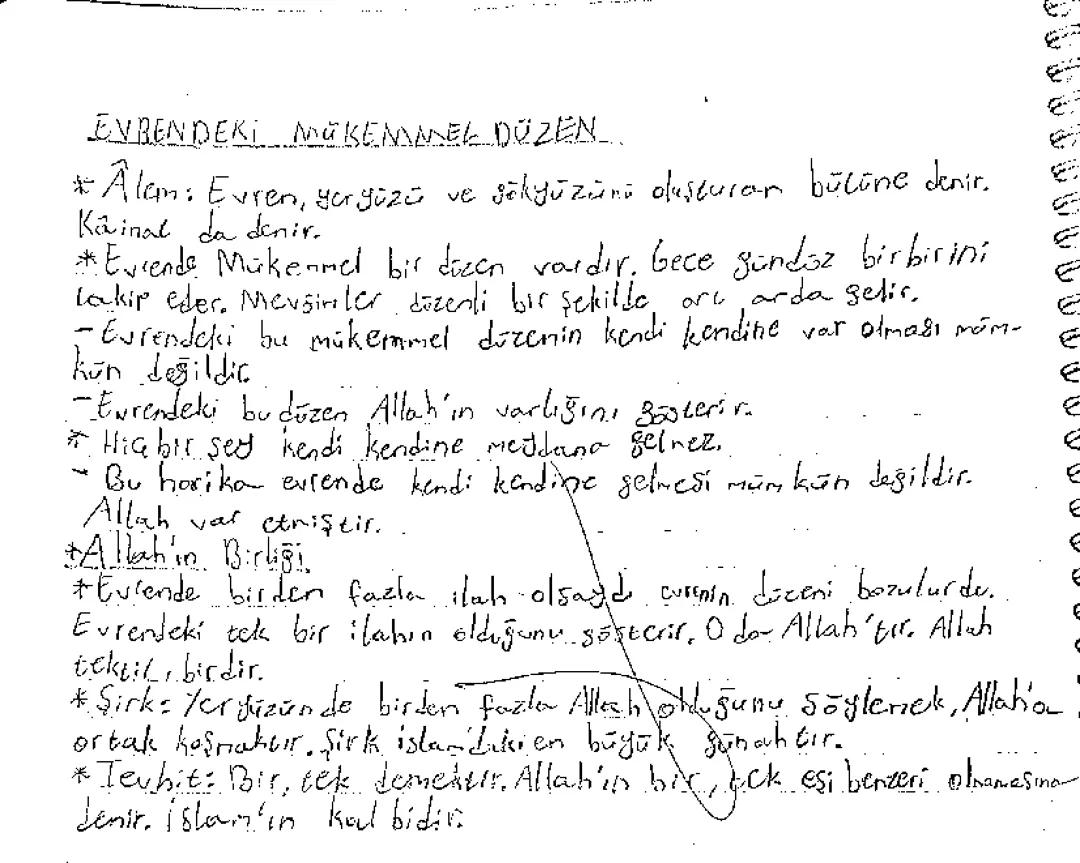 EVRENDEKİ MÜKEMMEL DÜZEN
* Âlem: Evren, yeryüzü ve gökyüzünü oluşturan bütüne denir.
Kâinat da denir.
* Evrende Mükemmel bir düzen vardır. Gece gündüz birbirini
takip eder. Mevsimler düzenli bir şekilde arı arda gelir.
- Evrendeki bu mükemmel düzenin kendi kendine var olması müm-
kün değildir.
- Evrendeki bu düzen Allah'ın varlığını gösterir.
* Hiçbir şey kendi kendine meydana gelmez.
- Bu harika evrende kendi kendine gelmesi mümkün değildir.
Allah var etmiştir.
* Allah'ın Birliği
* Evrende birden fazla ilah olsaydı evrenin düzeni bozulurdu.
Evrendeki tek bir ilahın olduğunu gösterir. O da Allah'tır. Allah
tektir, birdir.
* Şirk: Yeryüzünde birden fazla Allah olduğunu söylemek, Allah'a
ortak koşmaktır. Şirk islam'daki en büyük günahtır.
* Tevhit: Bir, tek demektir. Allah'ın bir, tek eşi benzeri olmamasına
denir. İslam'ın kalbidir.